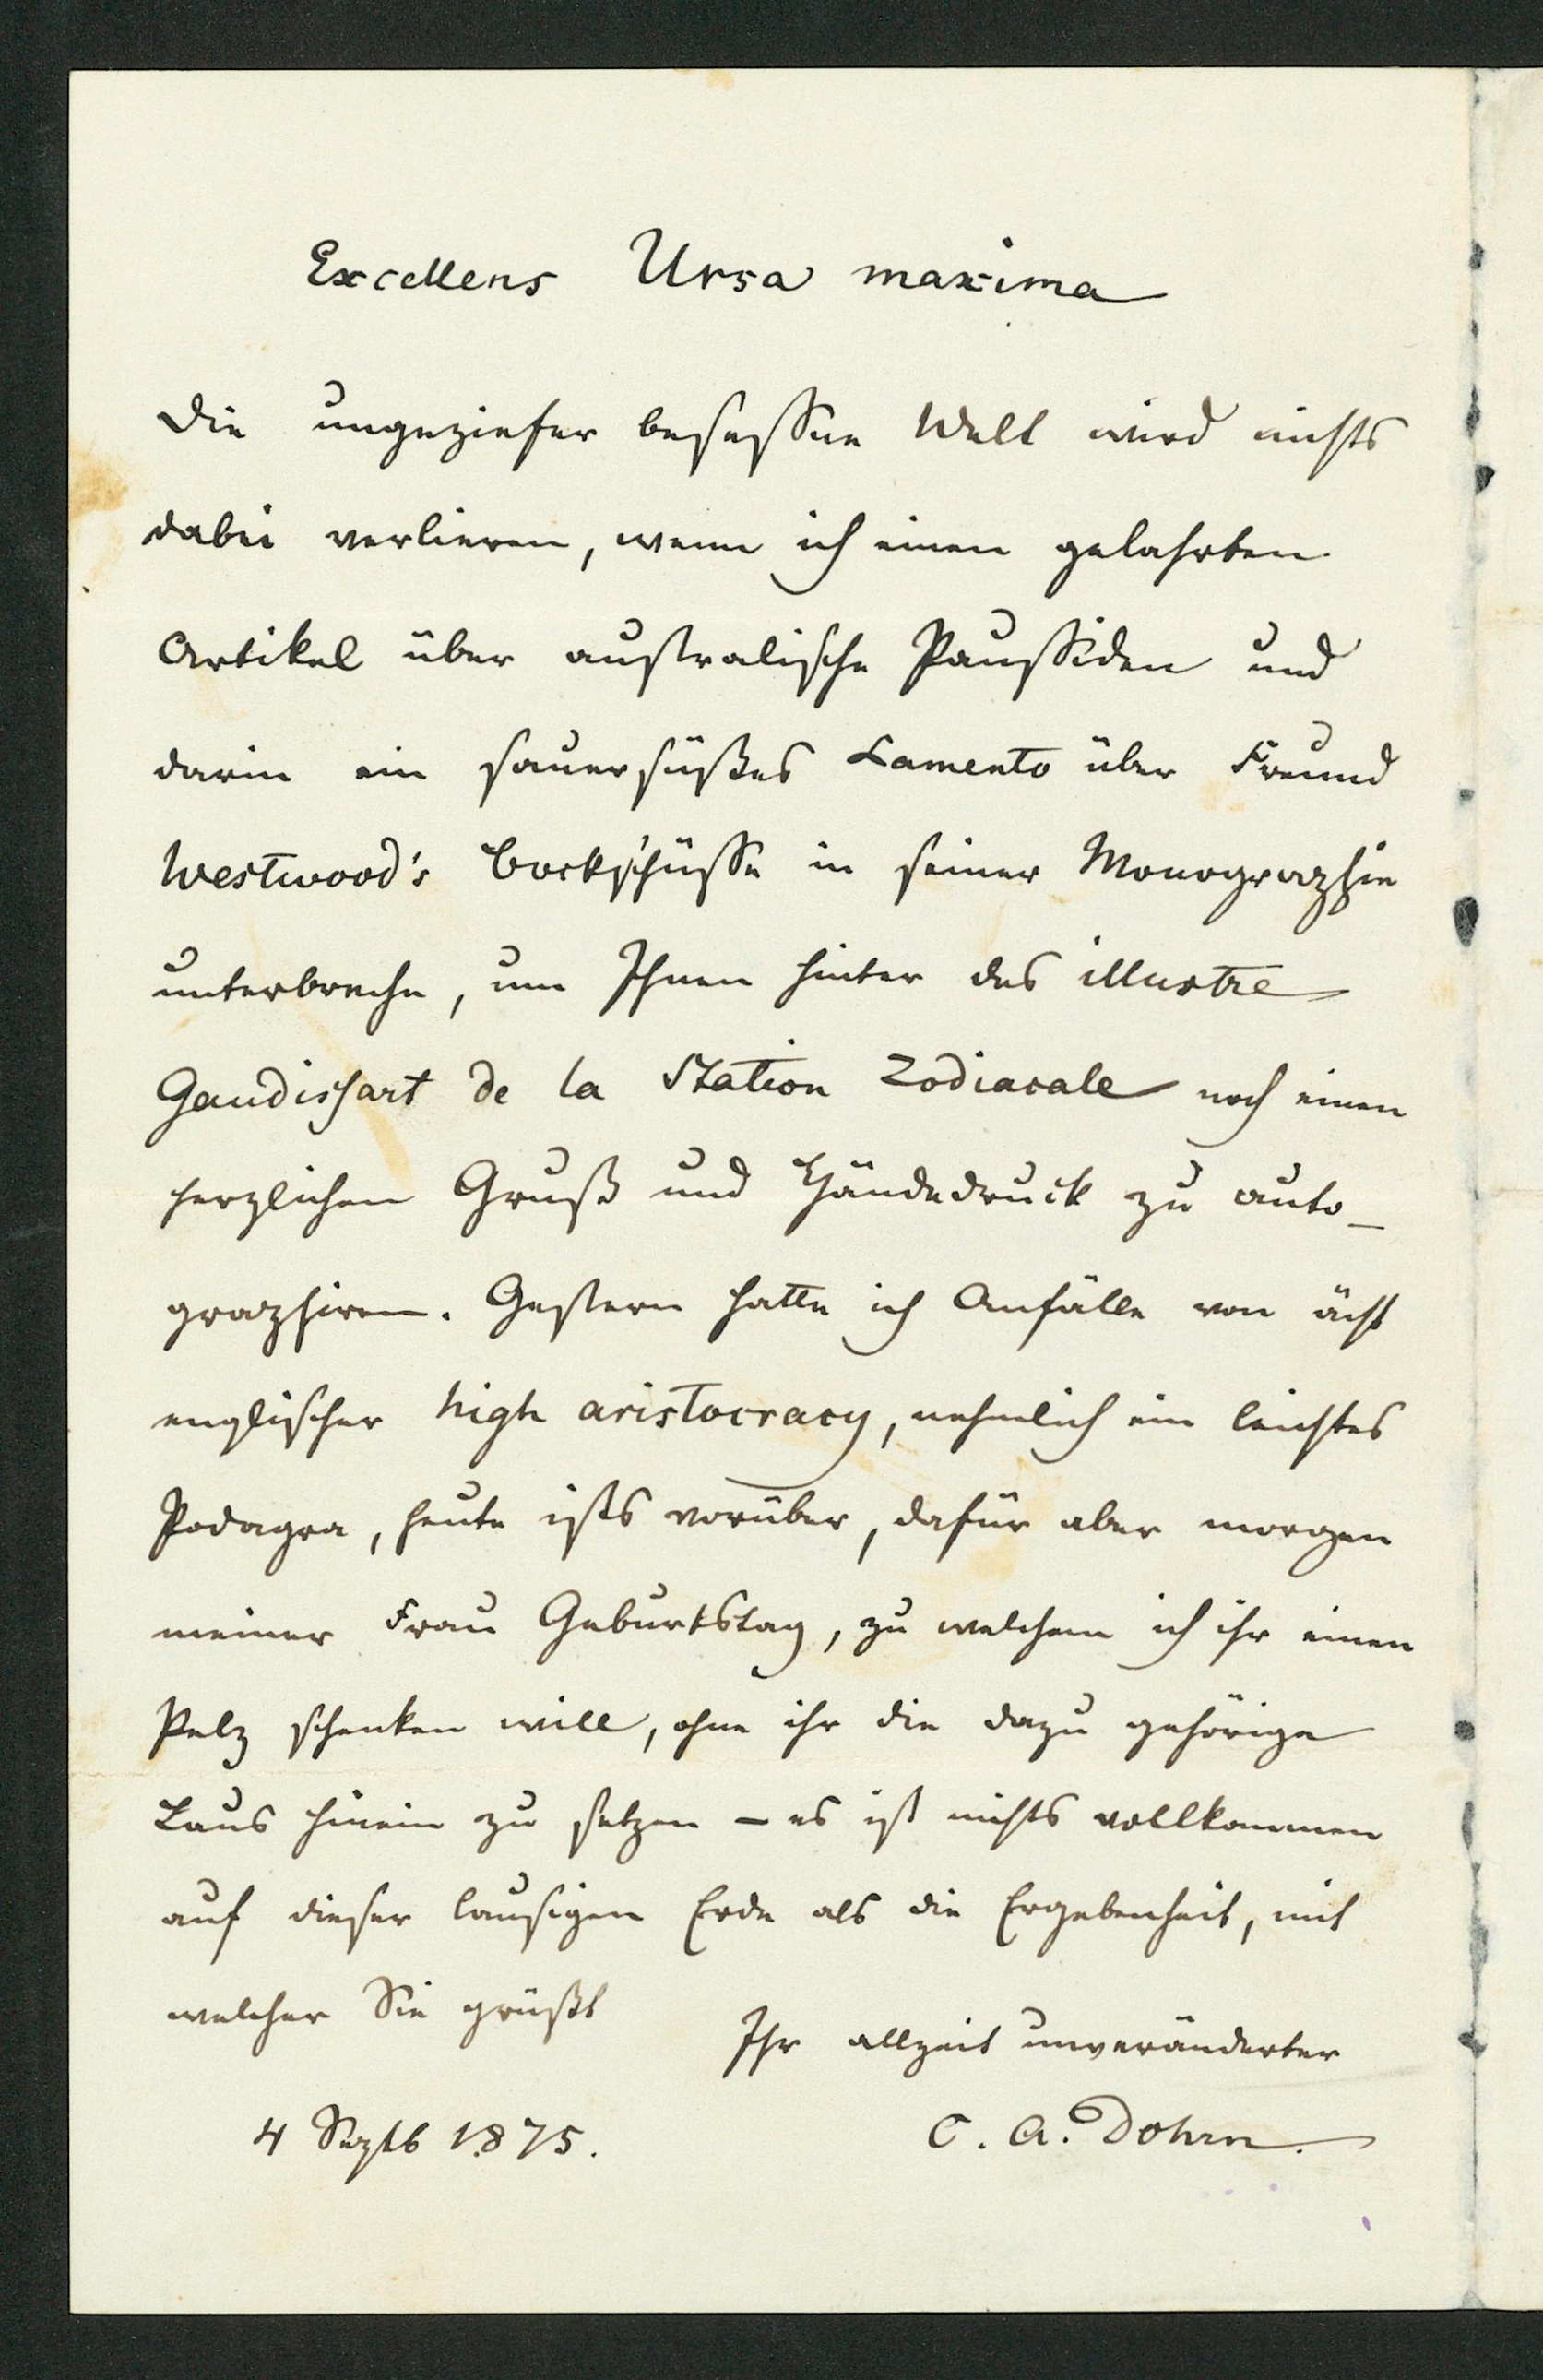 Excellens Ursa maxima
Die ungeziefer besessne Welt wird nichts
dabei verlieren, wenn ich einen gelahrten
Artikel über australische Paussiden und
darin ein sauersüßes Lamento über Freund
Westwood's Bockschüsse in seiner Monographie
unterbreche, um Ihnen hinter des illustre
Gaudissart de la Station Zodiacale noch einen
herzlichen Gruß und Händedruck zu auto-
graphiren. Gestern hatte ich Anfälle von ächt
englischer high aristocracy, nehmlich ein leichtes
Podagra, heute ists vorüber, dafür aber morgen
meiner Frau Geburtstag, zu welchem ich ihr einen
Pelz schenken will, ohne ihr die dazu gehörige
Laus hinein zu setzen – es ist nichts vollkommen
auf dieser lausigen Erde als die Ergebenheit, mit
welcher Sie grüßt
Ihr allzeit unveränderter
4 Septb 1875.
C. A. Dohrn